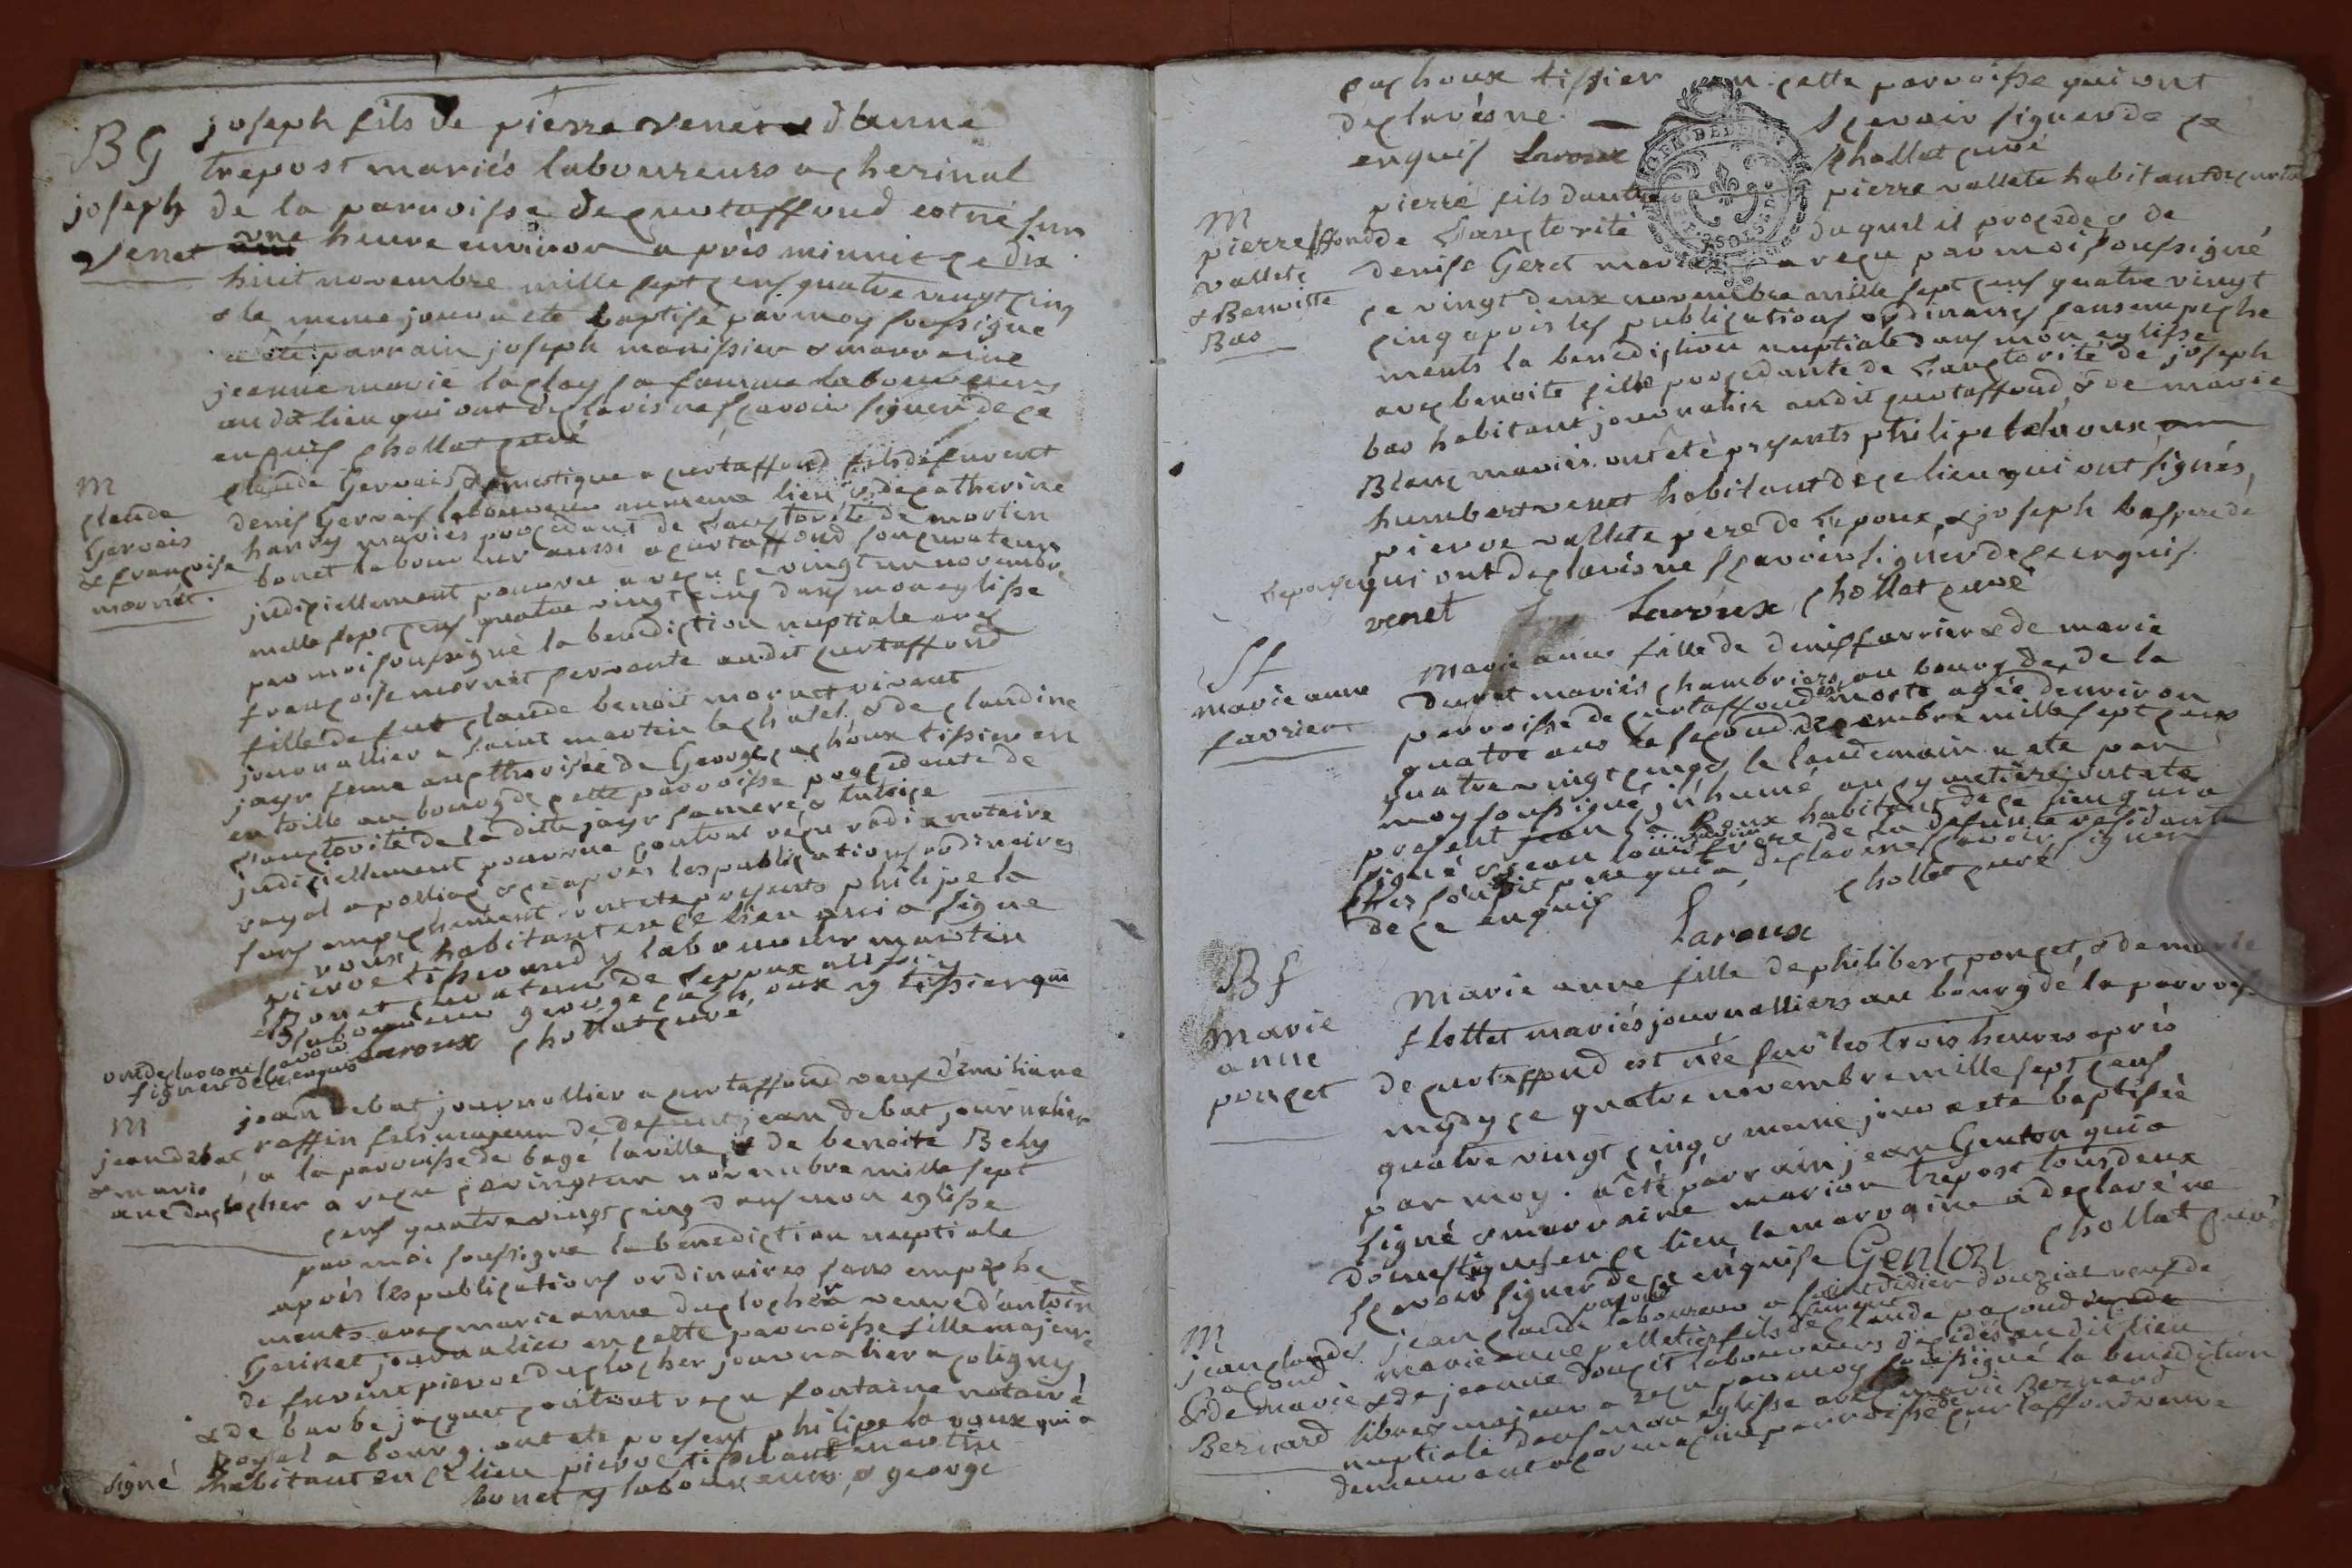 BG
joseph
venet
joseph fils de pierre venet & danne
trepost mariés laboureurs a cherinal
de la parroisse de curtaffond est né sur
une heure environ après minuit ce dix
huit novembre mille sept cens quatre vingt cinq
& le meme jour a ete baptisé par moy soussigné
a été parrain joseph manissier & marraine
jeanne marie laclay sa femme laboureurs
audit lieu qui ont déclaré ne scavoir signer de ce
enquis chollat curé
M
claude
Gervais
& françoise
mornét.
claude Gervais domestique a curtaffond fils de furent
denis Gervais laboureur au meme lieu & de catherine
handy mariés procedant de l'auctorité de martin
bonet laboureur aussi a curtaffond son curateur
judiciellement pourvu a reçu ce vingt un novembre
mille sept cens quatre vingt cinq dans mon eglisse
par moi soussigné la benediction nuptiale avec
françoise mornét servante audit curtaffond
fille de fut claude benoit mornet vivant
journallier a saint martin le chatel, & de claudine
jayr feme aucthorisée de George cachoux tissier en
en toille au bourg de cette parroisse procedante de
l'auctorité de la ditte jayr sa mere & tutrice
judiciellement pourvue contrat reçu rodi notaire
royal a polliac & ce après les publications ordinaires
sans empechement. ont ete présents philipe la
roux habitant en ce lieu qui a signé
pierre tisserand y laboureur martin
Bonet curateur de l'epoux aussi
laboureur george cachoux y tissier qui
ont declaré ne scavoir
signer de ce enquis Laroux chollat curé
M
jean debat
& marie
ane duclocher
jean debat journallier a curtaffond veuf d'émiliane
raffin fils majeur de defunt jean debat journalier
a la parroisse de bagé la ville, & de benoite Bely
a reçu ce vingt un novembre mille sept
cens quatre vingt cinq dans mon eglisse
par moi soussigné la benediction nuptiale
après les publications ordinaires sans empeche
ments avec marie anne duclocher veuve d'antoin
Geninet journalier en cette parroisse fille majeure
de furent pierre duclocher journalier a coligny
& de barbe jacquet contrat reçu fontaine notaire
Royal a bourg. ont ete present philipe la roux qui a
signé habitant en ce lieu pierre tisserant martin
bonet y laboureurs, & george
cachoux tissier en cette parroisse qui ont
declaré ne scavoir signer de ce
enquis Laroux chollat curé
M
pierre
vallete
& Benoitte
Bas
pierre fils d'autre pierre vallete habitant de curta
ffond de l'auctorité duquel il procede & de
denise Geret mariés a reçu par moi soussigné
ce vingt deux novembre mille sept cens quatre vingt
cinq après les publications ordinaires sans empeche
ments la benediction nuptiale dans mon eglisse
avec benoite fille procedante de l'auctorité de joseph
bas habitant journalier audit curtaffond, & de marie
Blanc mariés. ont été présents philipe la roux
humbert venet habitant de ce lieu qui ont signés,
pierre vallete pere de l'epoux, & joseph bas pere de
l'epouse qui ont declarés ne scavoir signer de ce enquis.
venet Laroux chollat curé
Sf
marie anne
favrier
Marie anne fille de denis favrier & de marie
duret mariés chambriers au bourg de la
parroisse de curtaffond est morte agée denviron
quatre ans le second decembre mille sept cens
quatre vingt cinq & le landemain a ete par
moy soussigné inhumé au cymetière ont ete
present jean la Roux habitant de ce lieu qui a
signé & jean louis favrier frere de la defunte residante
chez soudit pere qui a declaré ne scavoir signer
de ce enquis Laroux chollat curé
Bf
marie
anne
poncet
Marie anne fille de philibert poncet, & de marie
flottet mariés journalliers au bourg de la parroys
de curtaffond est née sur les trois heures après
mydy ce quatre novembre mille sept cens
quatre vingt cinq, & meme jour a ete baptisée
par moy. a été parrain jean Genton qui a
signé & marraine marion trepost tous deux
domestiques en ce lieu la marraine a déclaré ne
scavoir signer de ce enquise Genton chollat curé
M
jean claude
pacoud
& de marie
Bernard
jean claude pacoud laboureur a saint didier d'ouziat veuf de
marie anne pelletier fils de furent claude pacoud
& de jeanne doucet laboureurs décédés audit lieu
libre & majeur a reçu par moy soussigné la benediction
nuptiale dans mon eglisse avec marie Bernard
demeurant a cormacine parroisse de curtaffond veuve